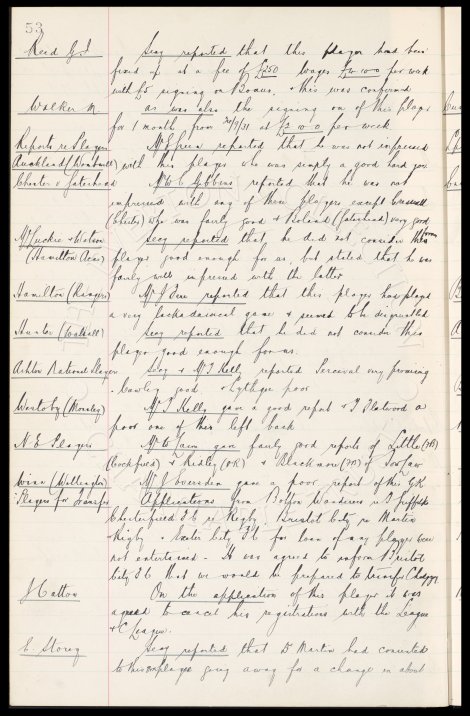 53
Reid G.J Secy reported that this player had been
fixed up at a fee of £250 wages per week
with £5 signing on Bonus. & this was confirmed
Walker as was also the signing on of this player
for 1 month from /9/31 at £2-0-0 per week
Reports re Players Mr Green reported that he was not impressed
Auckland (Wombwell) with this player who was simply a good hard goer
Chester v Gateshead Mr W.C Gibbins reported that he was not
impressed with any of these players except Cresswell
(Chester) who was fairly good & (Gateshead) very good
McLuckie & Watson Secy reported that he did not consider the former
(Hamilton Acas) player good enough for us, but stated that he was
fairly well impressed with the latter
Hamilton (Rangers) Mr reported that this player had played
a very lackadaisical game & seemed to be disgruntled
Hunter (Walsall) Secy reported that he did not consider this
player good enough for us.
Ashton National Players Secy & Mr J Kelly reported Percival very promising
Cawley good & Lythgoe poor
(Worsley) Mr J Kelly gave a good report & J Flatwood a
poor one of this left back
N.E Players Mr gave fairly good reports of Little
& Ridley (OR) & Blackmore of Tow Law
(Wellington) Mr J gave a poor report of this GK
Players for Transfer Applications from Bolton Wanderers re Griffiths
Chesterfield F.C re Rigby. Bristol City re Martin
Rigby & Exeter City F.C for loan of any players were
not entertained. It was agreed to inform Bristol
City F.C that we would be prepared to transfer
J Catton On the application of this player it was
agreed to cancel his registrations with the League
& C. League.
E. Storey Secy reported that Dr Martin had consented
to this player going away for a change in about